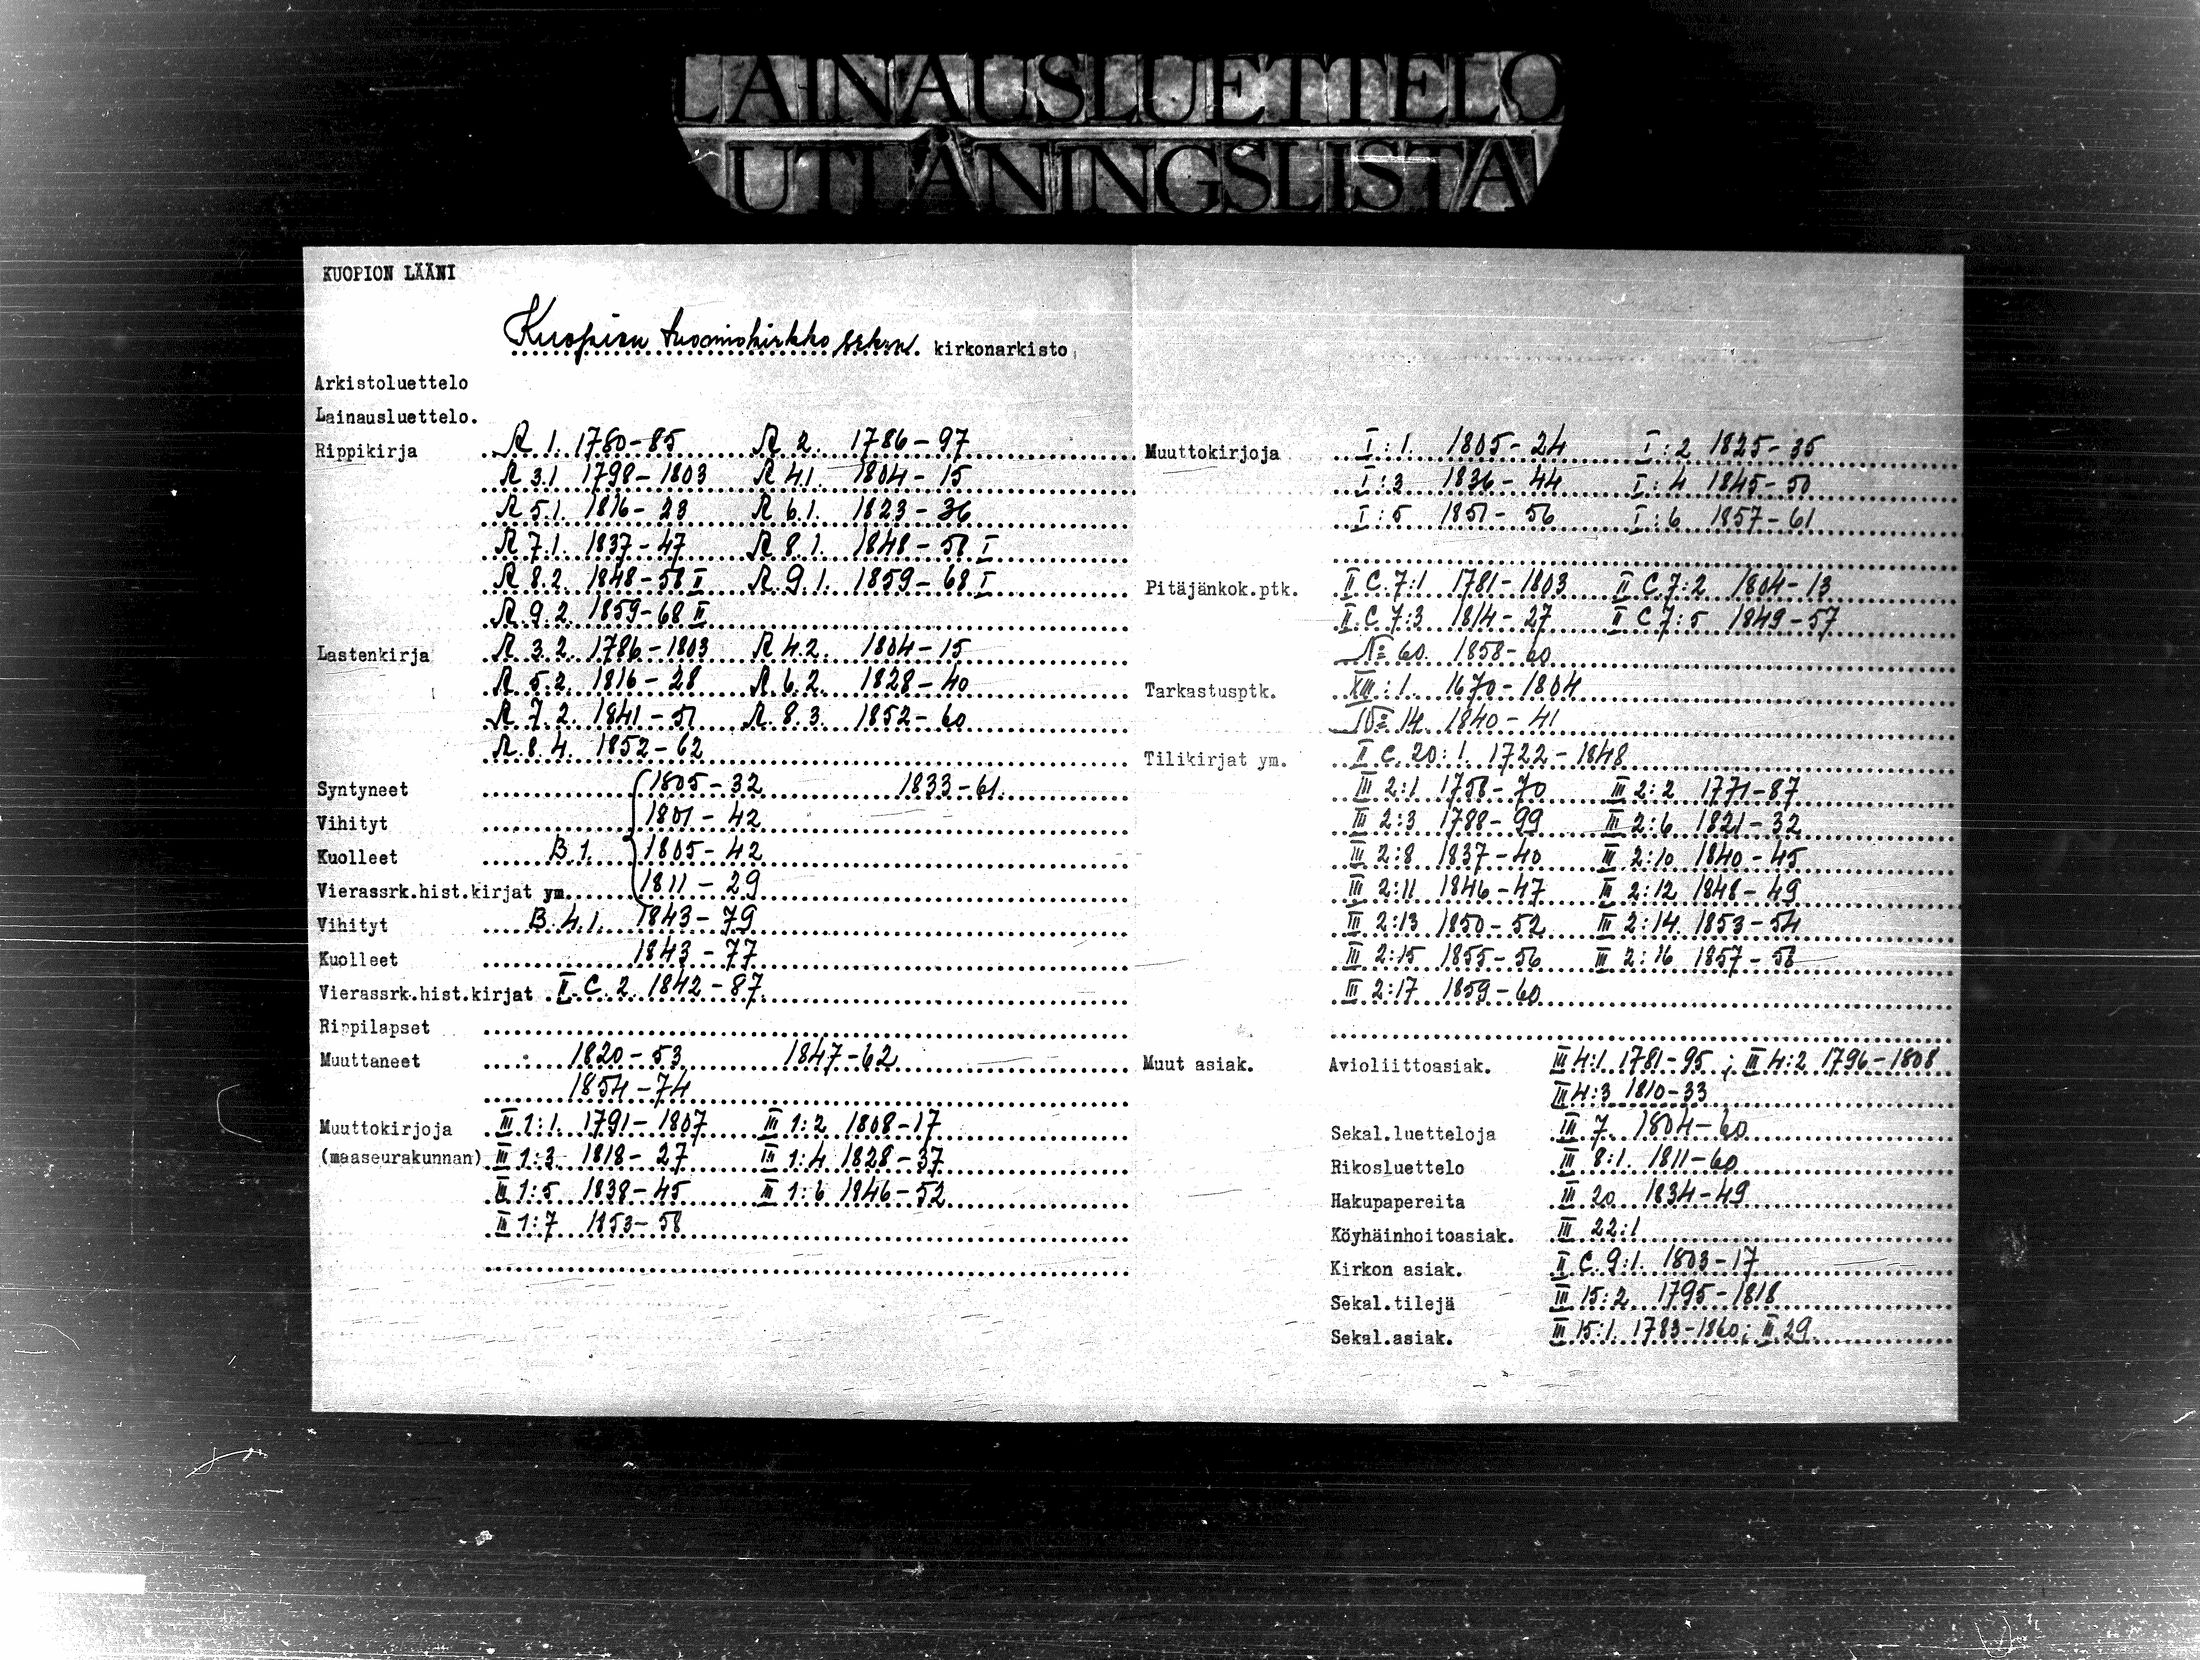 LAINAUSLUETTELO
UTLÅNINGSLISTA
KUOPION LÄÄNI
Kuopion tuomiokirkko srk:n. kirkonarkisto
Arkistoluettelo
Lainausluettelo.
Rippikirja R 1. 1780-85 R 2. 1786-97
R 3.1 1798-1803 R 4.1. 1804-15
R 5.1. 1816-23 R 6.1. 1823-36
R 7.1. 1837-47 R 8.1. 1848-58 I
R 8.2. 1848-58 II R 9.1. 1859-68 I
R 9.2. 1859-68 II
Lastenkirja R 3.2. 1786-1803 R 4.2. 1804-15
R 5.2. 1816-28 R 6.2. 1828-40
R 7.2. 1841-51 R 8.3. 1852-60
R 8.4. 1852-62
Syntyneet 1805-32 1833-61
Vihityt 1801-42
Kuolleet B 1. 1805-42
Vierassrk.hist.kirjat ym. 1811-29
Vihityt B.4.1. 1843-79
Kuolleet 1843-77
Vierassrk.hist.kirjat II C 2 1842-87
Rippilapset
Muuttaneet 1820-53 1847-62
1854-74
Muuttokirjoja III 1:1. 1791-1807 III 1:2 1808-17
(maaseurakunnan) III 1:3 1818-27 III 1:4 1828-37
III 1:5 1838-45 III 1:6 1846-52
III 1:7 1853-58
Muuttokirjoja I:1. 1805-24 I:2 1825-35
I:3 1836-44 I:4 1845-50
I:5 1851-56 I:6 1857-61
Pitäjänkok.ptk. II C 7:1 1781-1803 II C 7:2 1804-13
II C 7:3 1814-27 II C 7:5 1849-57
No 60. 1858-60
Tarkastusptk. XIII:1. 1670-1804
No 14. 1840-41
Tilikirjat ym. II C 20:1. 1722-1848
III 2:1 1758-70 III 2:2 1771-87
III 2:3 1788-99 III 2:6 1821-32
III 2:8 1837-40 III 2:10 1840-45
III 2:11 1846-47 III 2:12 1848-49
III 2:13 1850-52 III 2:14 1853-54
III 2:15 1855-56 III 2:16 1857-58
III 2:17 1859-60
Muut asiak. Avioliittoasiak. III 4:1 1781-95; III 4:2 1796-1808
III 4:3 1810-33
Sekal.luetteloja III 7. 1804-60
Rikosluettelo III 8:1. 1811-60
Hakupapereita III 20 1834-49
Köyhäinhoitoasiak. III 22:1
Kirkon asiak. II C 9:1. 1803-17
Sekal.tilejä III 15:2 1795-1818
Sekal.asiak. III 15:1. 1783-1860; II 29